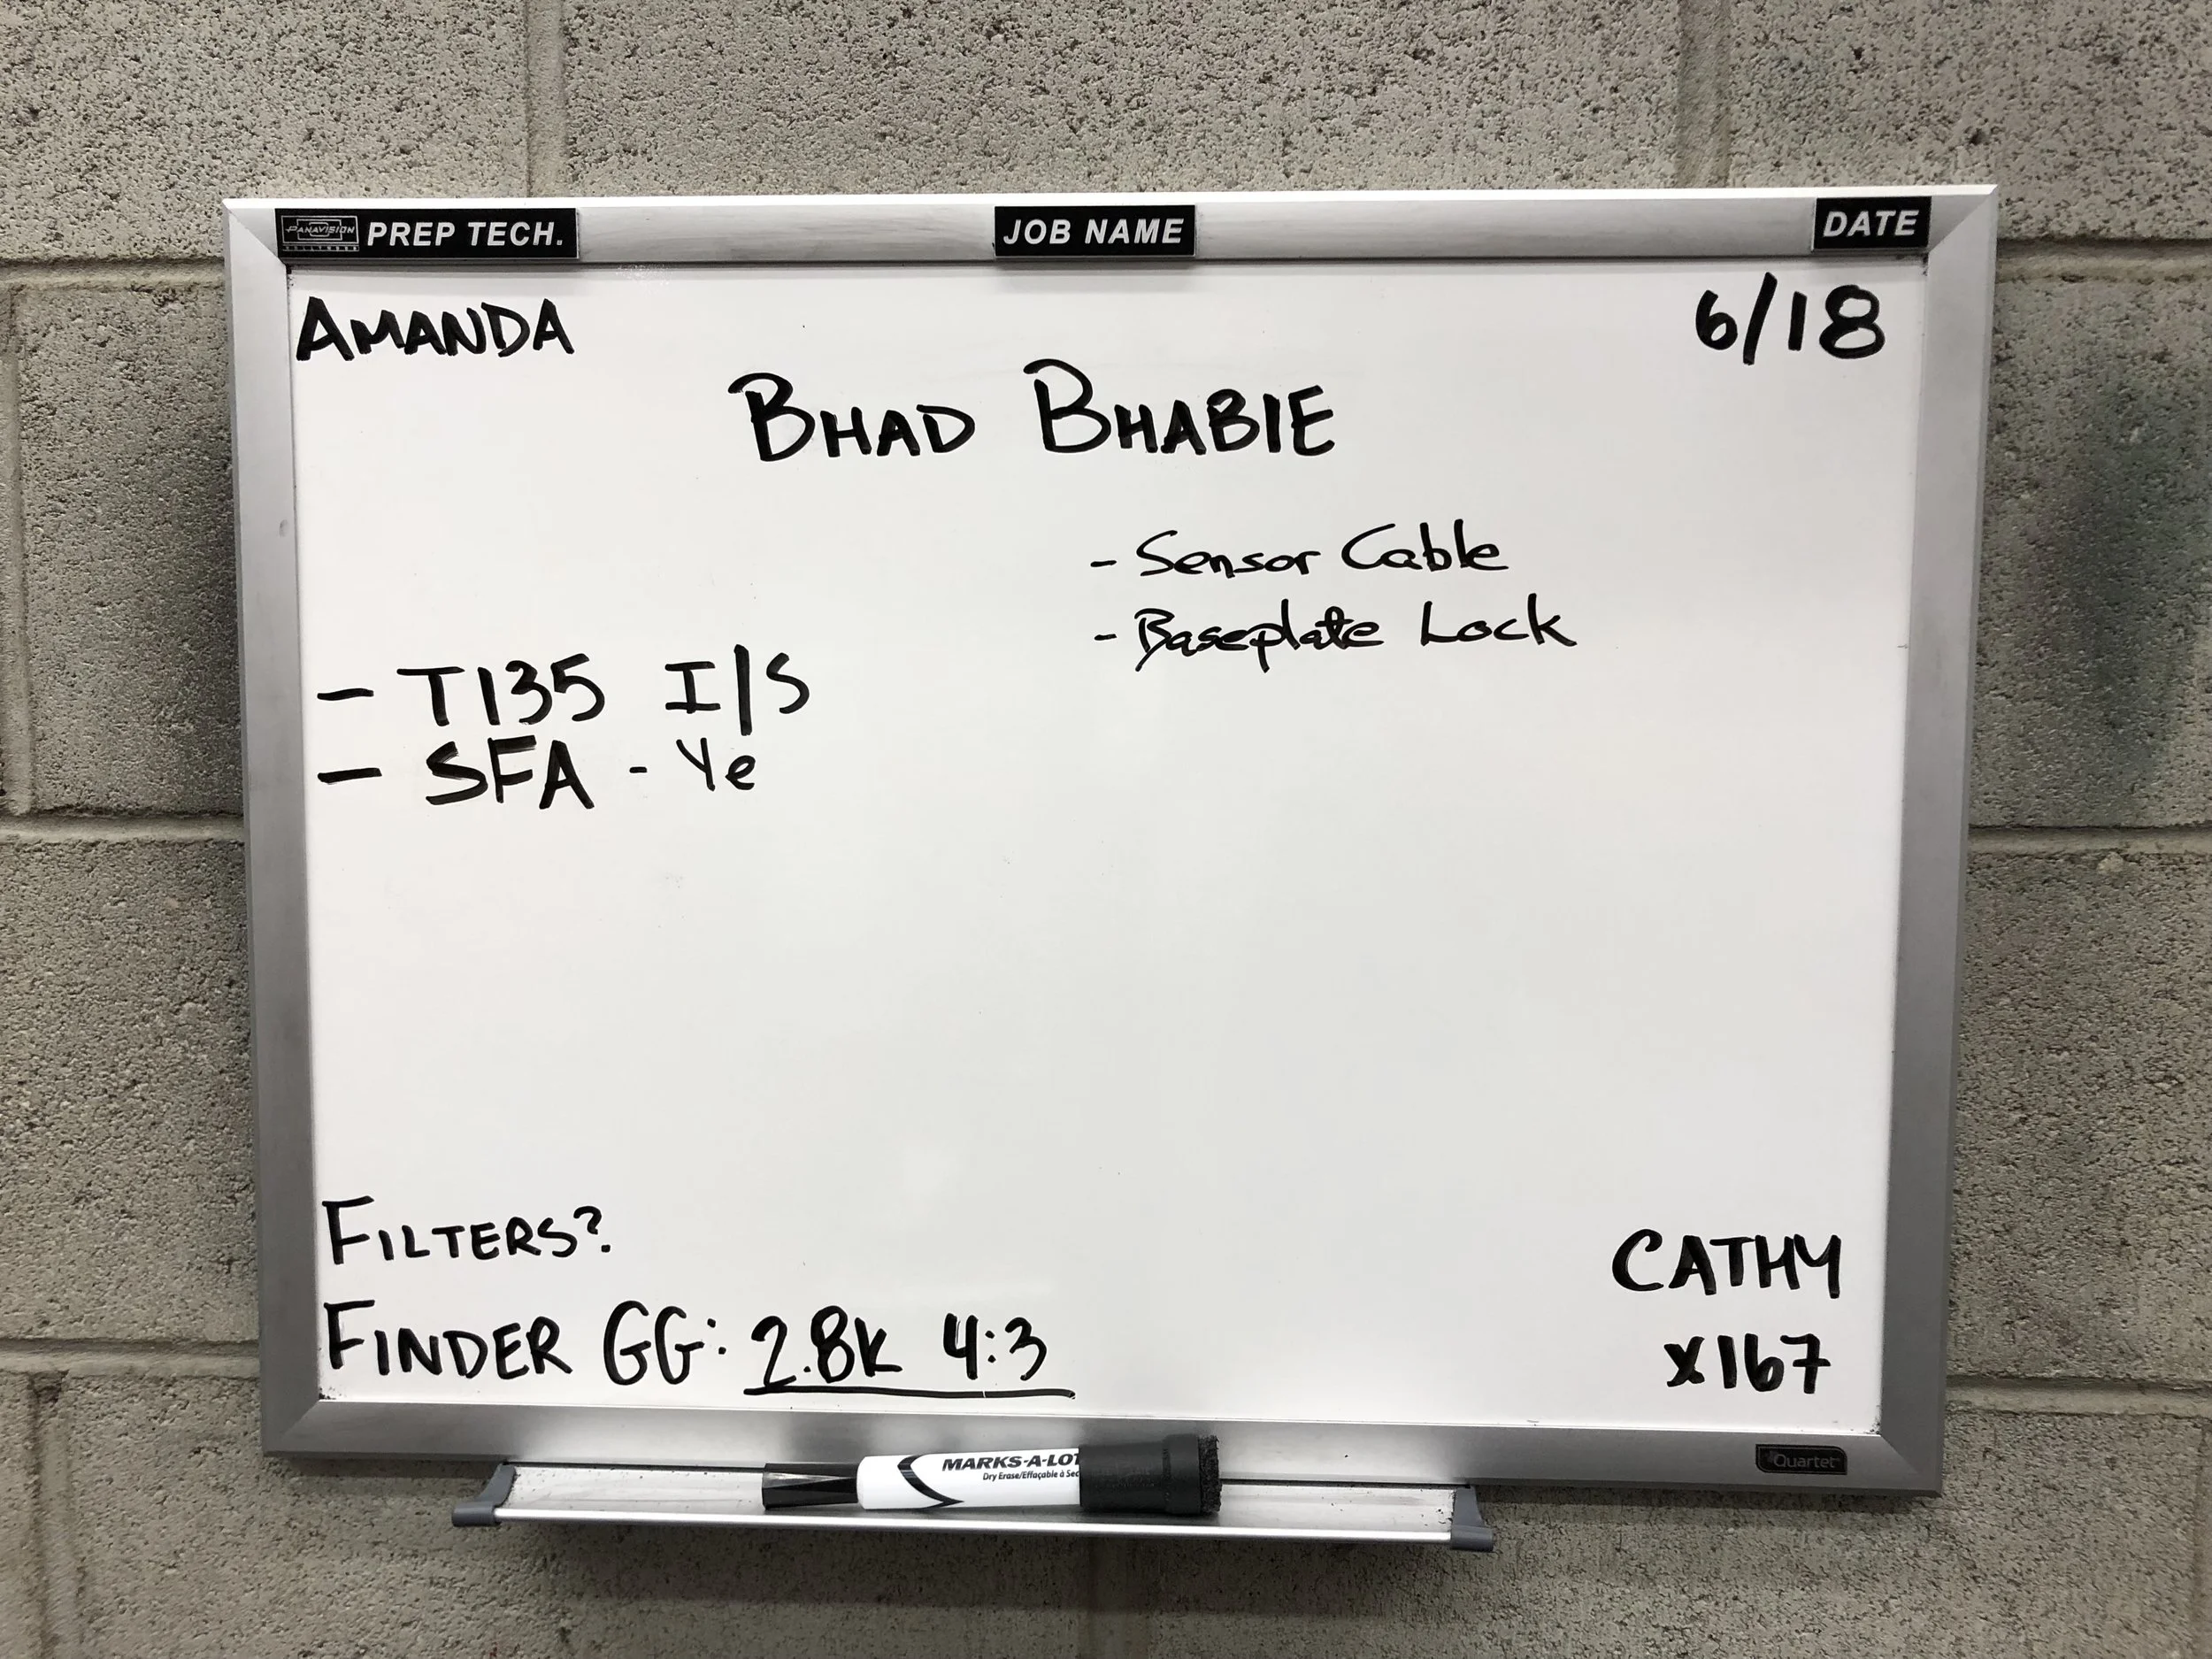 PANAVISION PREP TECH.
JOB NAME
DATE
AMANDA
6/18
BHAD BHABIE
- Sensor Cable
- Baseplate Lock
- T135 I/S
- SFA - Ye
FILTERS?
FINDER GG: 2.8K 4:3
CATHY
x167
MARKS-A-LOT
Dry Erase/Effaçable à Sec
Quartet